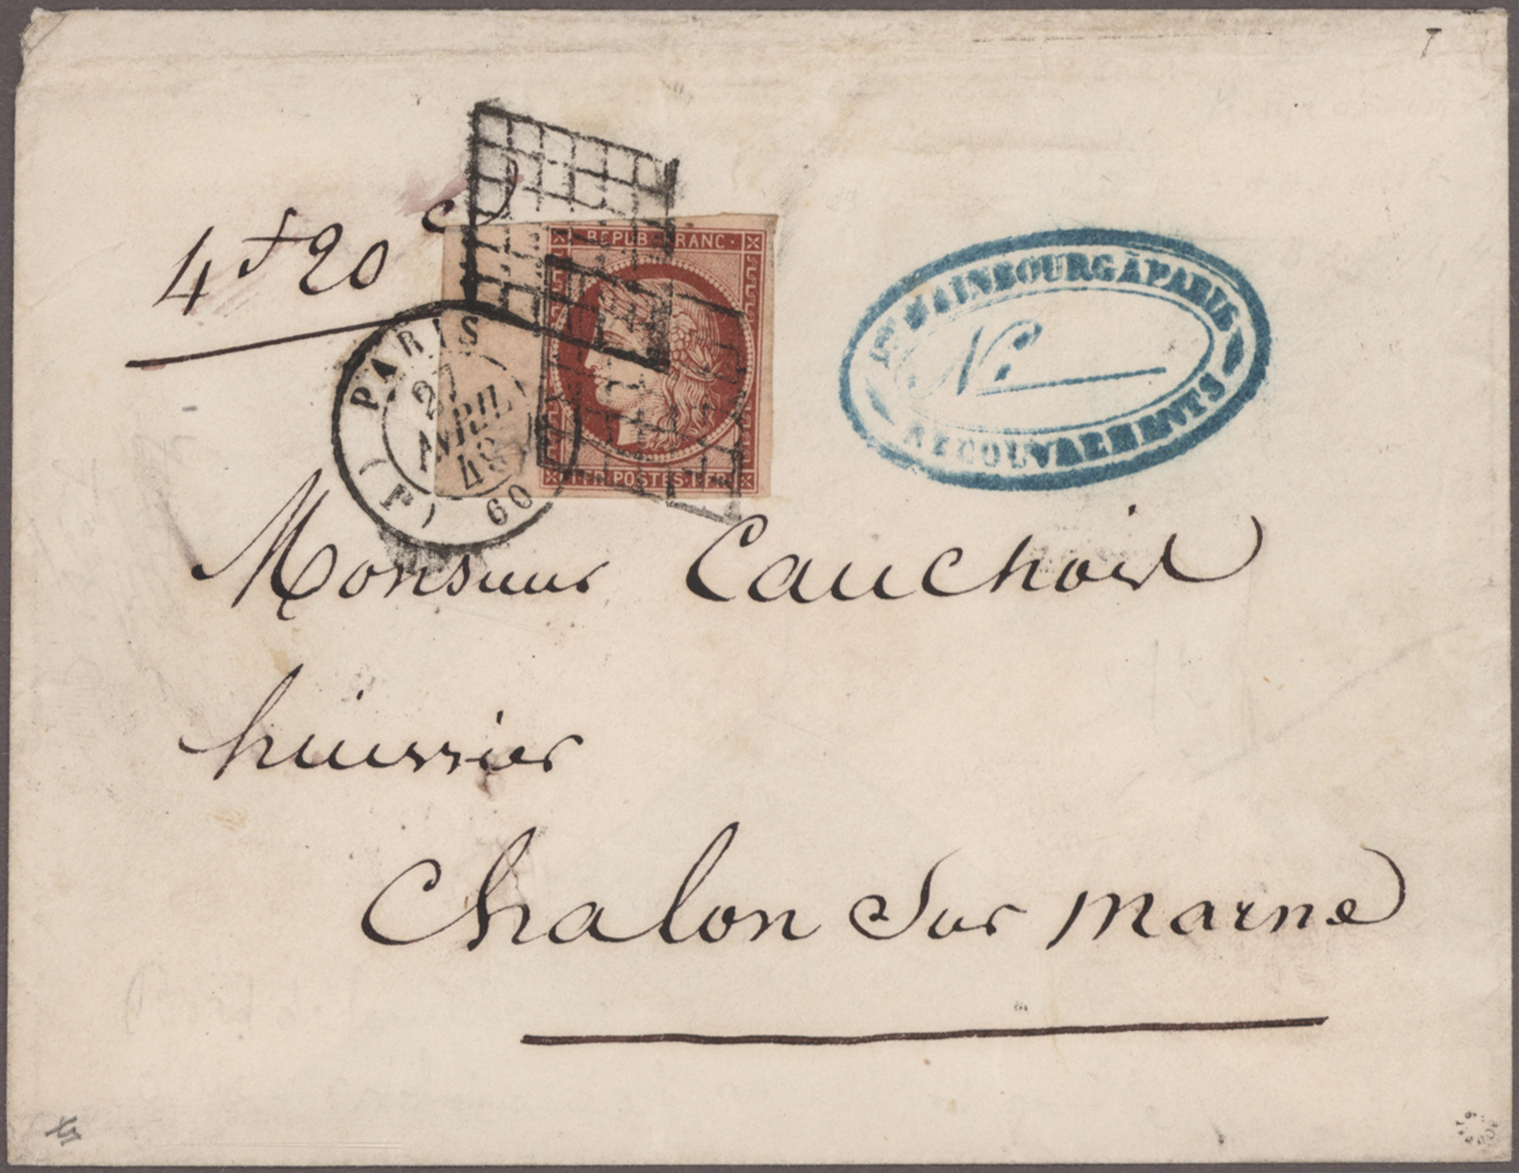 4 f 20 c
REPUB. FRANC.
1.FR.POSTES.1.FR.
PARIS
27
AVRIL
49
(P) 60
MAINBOURG À PARIS
No.
RECOUVREMENTS
Monsieur Cauchois
huissier
Chalon Sur Marne